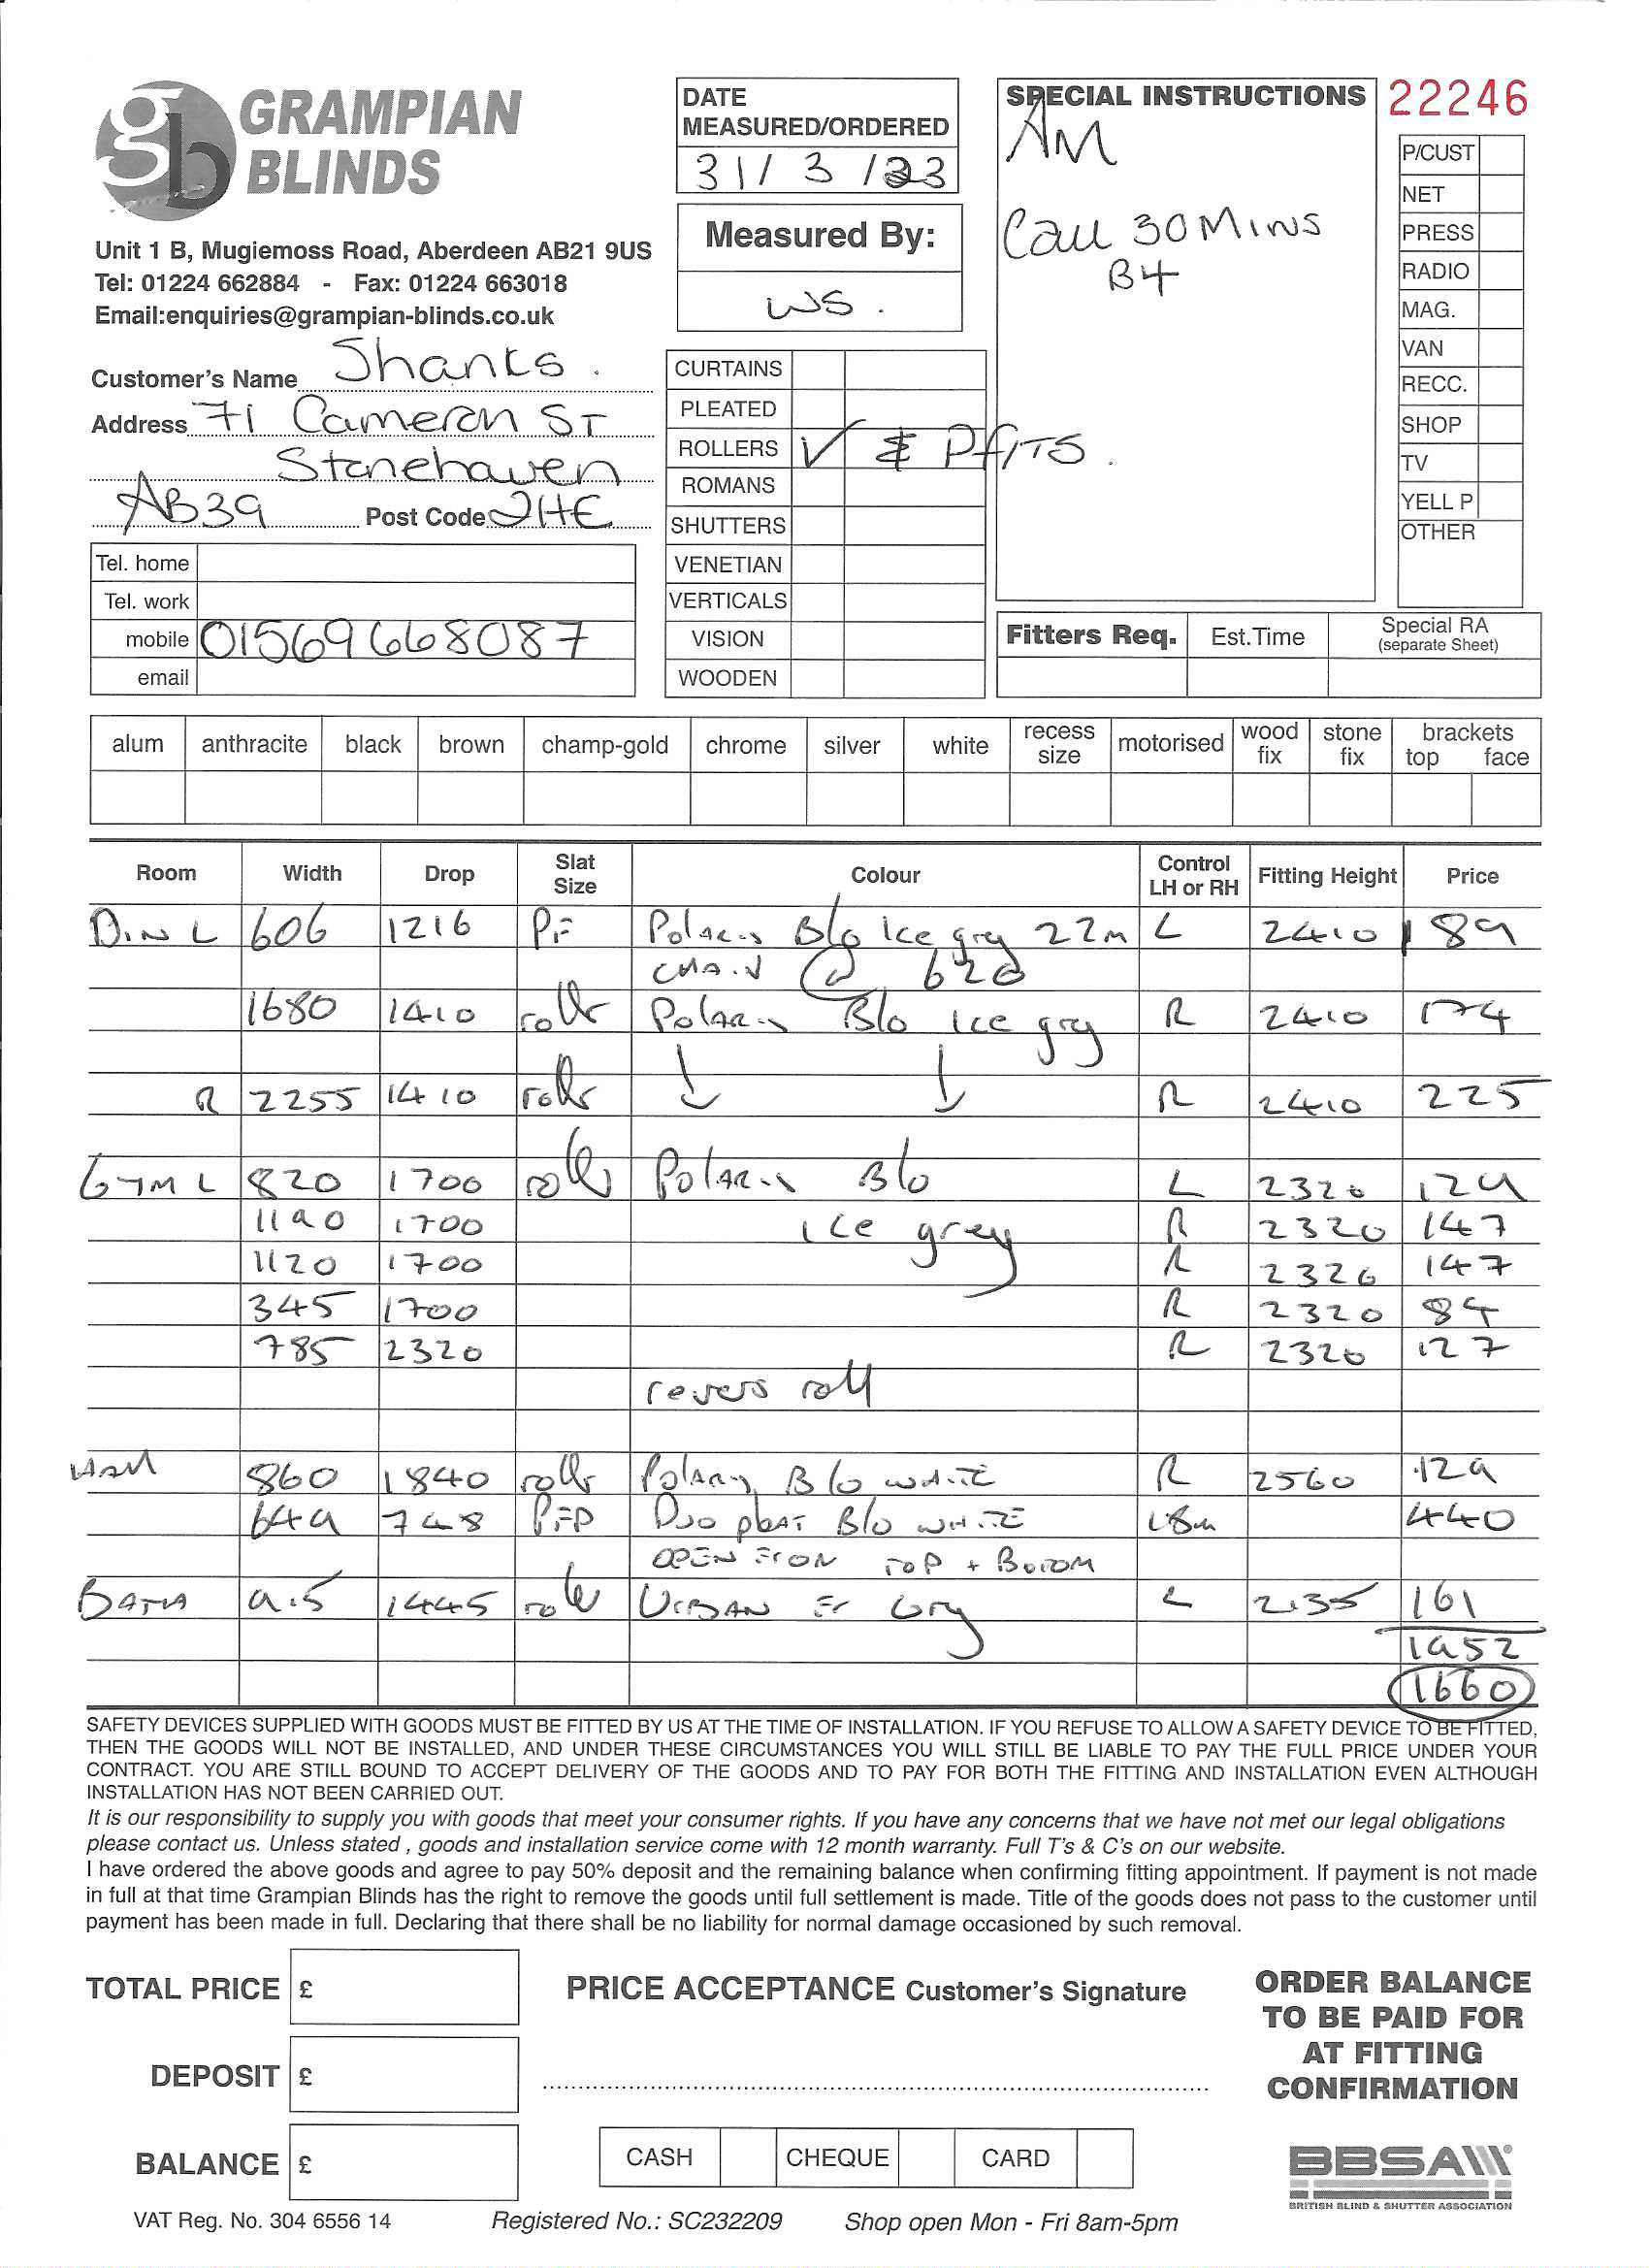 GRAMPIAN
BLINDS
Unit 1 B, Mugiemoss Road, Aberdeen AB21 9US
Tel: 01224 662884 - Fax: 01224 663018
Email:enquiries@grampian-blinds.co.uk
DATE
MEASURED/ORDERED
31/ 3 /23
Measured By:
WS.
SPECIAL INSTRUCTIONS
AM
Call 30 Mins
B4
22246
P/CUST
NET
PRESS
RADIO
MAG.
VAN
RECC.
SHOP
TV
YELL P
OTHER
Customer's Name Shanks.
Address 71 Cameron ST
Stonehaven
AB39 Post Code 2HE
Tel. home
Tel. work
mobile 01569668087
email
CURTAINS
PLEATED
ROLLERS ✓ & PfITS.
ROMANS
SHUTTERS
VENETIAN
VERTICALS
VISION
WOODEN
Fitters Req. Est.Time Special RA
(separate Sheet)
alum anthracite black brown champ-gold chrome silver white recess size motorised wood fix stone fix brackets top face
Room Width Drop Slat Size Colour Control LH or RH Fitting Height Price
DIN L 606 1216 PF Polaris B/o Ice gry 22m L 2410 89
CHAIN @ 620
1680 1410 rollr Polaris B/o Ice gry R 2410 174
R 2255 1410 rollr ↓ ↓ R 2410 225
GYM L 820 1700 rollr Polaris B/o L 2320 129
1190 1700 Ice grey R 2320 147
1120 1700 R 2320 147
345 1700 R 2320 84
785 2320 R 2320 127
revers roll
860 1840 rollr Polaris B/o WHITE R 2560 129
649 748 PFP Duo pleat B/o WHITE 18m 440
OPEN FROM TOP + BOTTOM
BATH 915 1445 rollr URBAN Fr Gry L 2135 161
1952
1660
SAFETY DEVICES SUPPLIED WITH GOODS MUST BE FITTED BY US AT THE TIME OF INSTALLATION. IF YOU REFUSE TO ALLOW A SAFETY DEVICE TO BE FITTED,
THEN THE GOODS WILL NOT BE INSTALLED, AND UNDER THESE CIRCUMSTANCES YOU WILL STILL BE LIABLE TO PAY THE FULL PRICE UNDER YOUR
CONTRACT. YOU ARE STILL BOUND TO ACCEPT DELIVERY OF THE GOODS AND TO PAY FOR BOTH THE FITTING AND INSTALLATION EVEN ALTHOUGH
INSTALLATION HAS NOT BEEN CARRIED OUT.
It is our responsibility to supply you with goods that meet your consumer rights. If you have any concerns that we have not met our legal obligations
please contact us. Unless stated , goods and installation service come with 12 month warranty. Full T's & C's on our website.
I have ordered the above goods and agree to pay 50% deposit and the remaining balance when confirming fitting appointment. If payment is not made
in full at that time Grampian Blinds has the right to remove the goods until full settlement is made. Title of the goods does not pass to the customer until
payment has been made in full. Declaring that there shall be no liability for normal damage occasioned by such removal.
TOTAL PRICE £
PRICE ACCEPTANCE Customer's Signature
ORDER BALANCE
TO BE PAID FOR
AT FITTING
CONFIRMATION
DEPOSIT £
BALANCE £
CASH CHEQUE CARD
BBSA
BRITISH BLIND & SHUTTER ASSOCIATION
VAT Reg. No. 304 6556 14 Registered No.: SC232209 Shop open Mon - Fri 8am-5pm